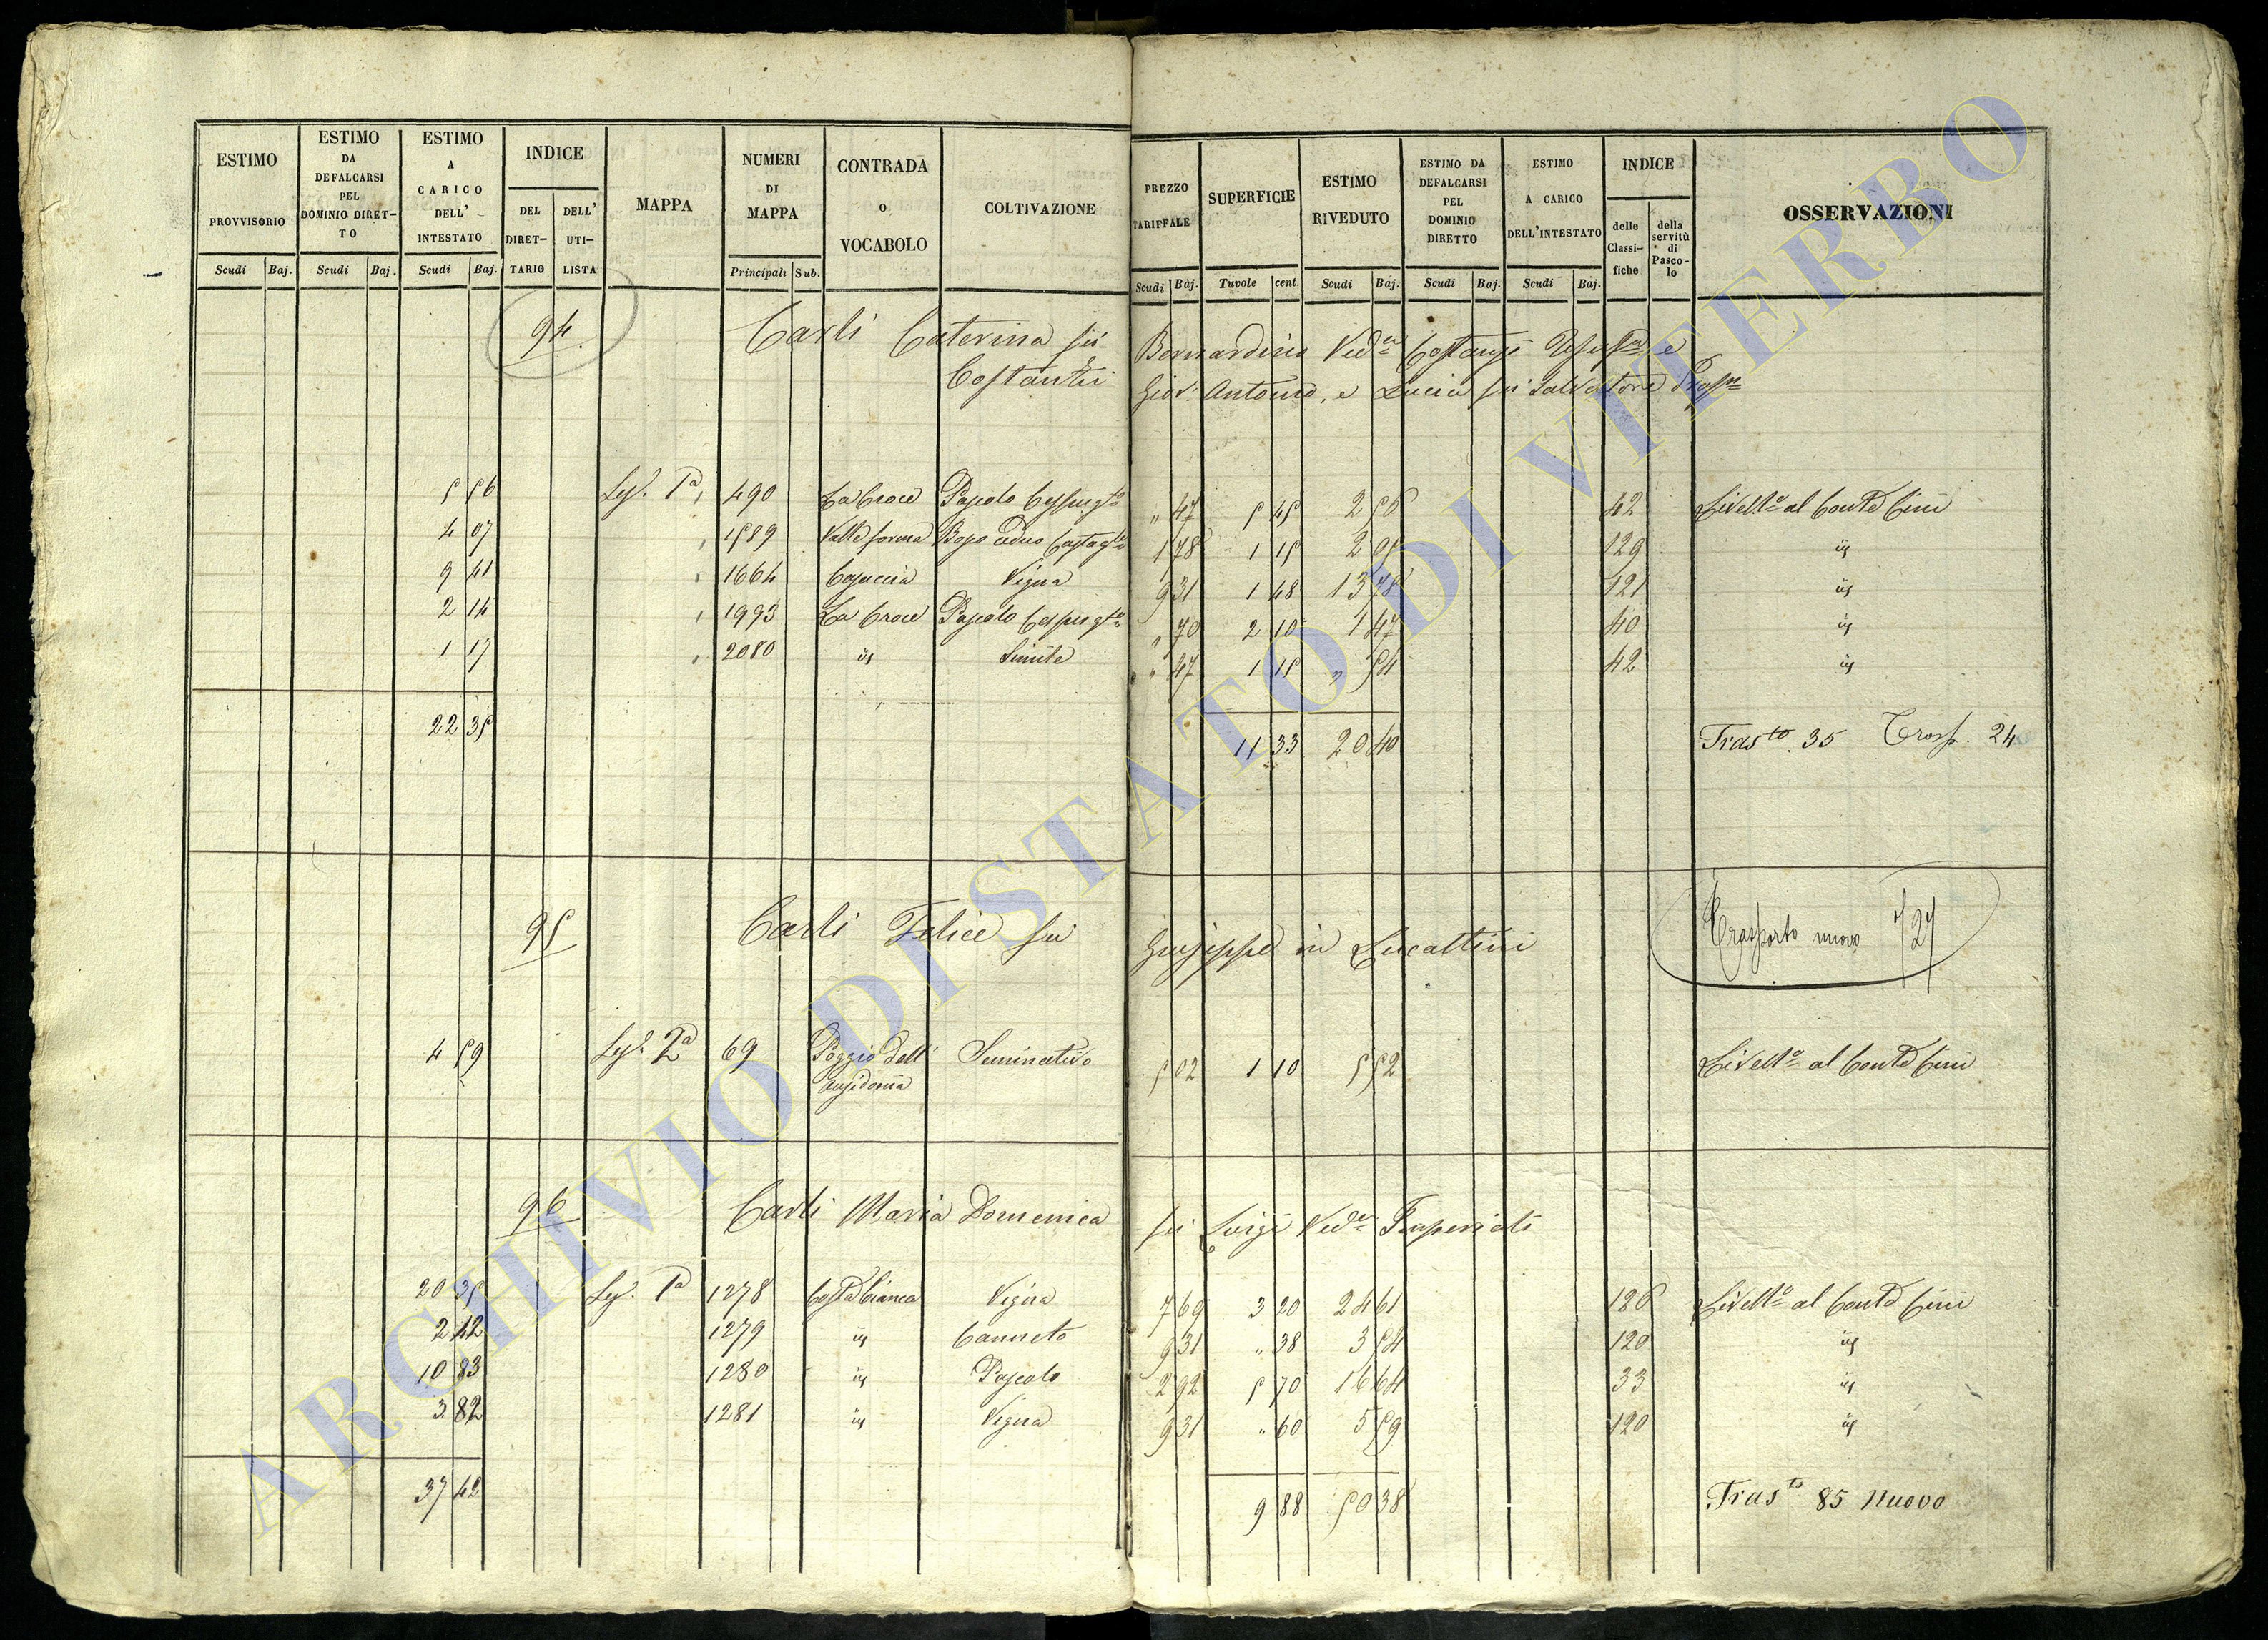 ESTIMO PROVVISORIO Scudi Baj.
ESTIMO DA DEFALCARSI PEL DOMINIO DIRETTO Scudi Baj.
ESTIMO A CARICO DELL' INTESTATO Scudi Baj.
INDICE DEL DIRETTARIO DELL' UTILISTA
MAPPA
NUMERI DI MAPPA Principali Sub.
CONTRADA O VOCABOLO
COLTIVAZIONE
PREZZO TARIFFALE Scudi Baj.
SUPERFICIE Tavole cent.
ESTIMO RIVEDUTO Scudi Baj.
ESTIMO DA DEFALCARSI PEL DOMINIO DIRETTO Scudi Baj.
ESTIMO A CARICO DELL'INTESTATO Scudi Baj.
INDICE delle Classifiche della servitù di Pascolo
OSSERVAZIONI
94 Carli Caterina fu Bernardino Ved.a e
Costantini Giov. Antonio, e Lucia fu Salvatore
5 56 1a 490 La Croce Pascolo " 47 5 45 2 56 42 Livell.o al Conte Cini
4 07 1589 Bosco ceduo 1 78 1 15 2 05 129 id
9 41 1664 Vigna 9 31 1 48 13 78 121 id
2 14 1993 La Croce Pascolo " 70 2 10 1 47 40 id
1 17 2080 id Simile " 47 1 15 " 54 42 id
22 35 11 33 20 40 Trasto. 35 Trasp. 24
95 Carli Felice fu Giuseppe in Lucattini Trasporto nuovo 727
4 59 2a 69 Poggio dell' Ansidonia Seminativo 5 02 1 10 5 52 Livell.o al Conte Cini
96 Carli Maria Domenica fu Luigi Ved.a Imperiali
20 35 1a 1278 Vigna 7 69 3 20 24 61 126 Livell.o al Conte Cini
2 42 1279 id Canneto 9 31 " 38 3 54 120 id
10 83 1280 id Pascolo 2 92 5 70 16 64 33 id
3 82 1281 id Vigna 9 31 " 60 5 59 120 id
37 42 9 88 50 38 Trasto 85 nuovo
ARCHIVIO DI STATO DI VITERBO